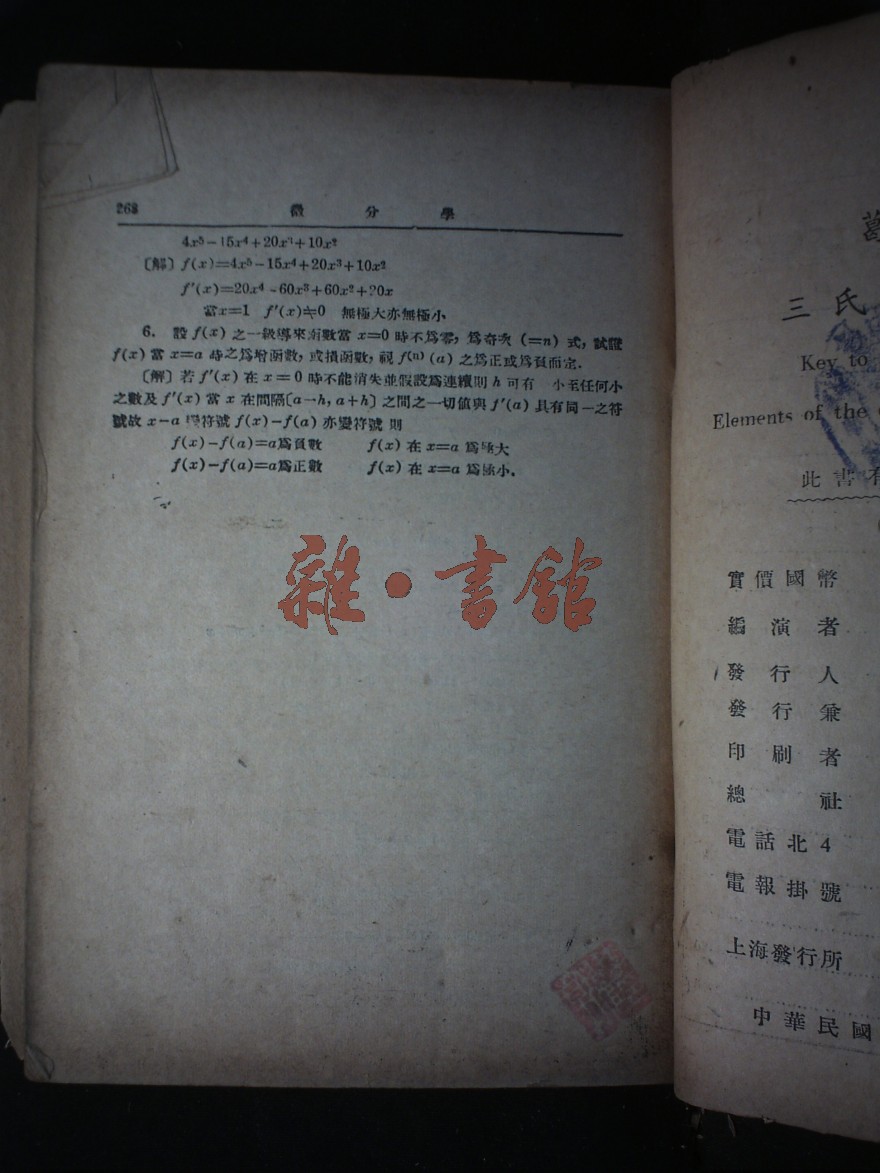 268 微分學
4x⁵-15x⁴+20x³+10x²
〔解〕f(x)=4x⁵-15x⁴+20x³+10x²
f′(x)=20x⁴-60x³+60x²+20x
當x=1 f′(x)≒0 無極大亦無極小
6. 設 f(x) 之一級導來函數當 x=0 時不爲零，爲奇次 (=n) 式，試證
f(x) 當 x=a 時之爲增函數，或損函數，視 f⁽ⁿ⁾(a) 之爲正或爲負而定.
〔解〕若 f′(x) 在 x=0 時不能消失並假設爲連續則 h 可有 小至任何小
之數及 f′(x) 當 x 在間隔〔a-h, a+h〕之間之一切值與 f′(a) 具有同一之符
號故 x-a 變符號 f(x)-f(a) 亦變符號 則
f(x)-f(a)=a爲負數 f(x) 在 x=a 爲極大
f(x)-f(a)=a爲正數 f(x) 在 x=a 爲極小.
雜·書館
葛
三氏
Key to
Elements of the
此書有
實價國幣
編演者
發行人
發行兼
印刷者
總社
電話北4
電報掛號
上海發行所
中華民國